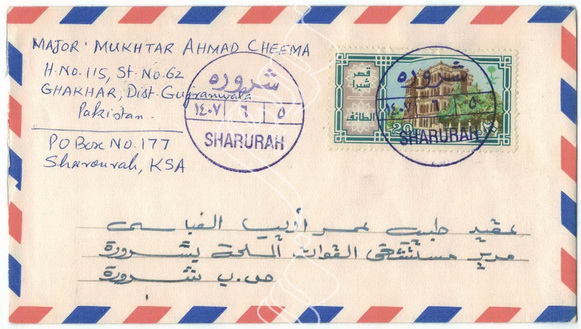 MAJOR: MUKHTAR AHMAD CHEEMA
H-No. 115, St-No-62
GHAKHAR, Dist-Gujranwala
Pakistan.
PO Box No. 177
Sharourah, KSA
شروره
١٤٠٧ ٦ ٥
SHARURAH
قصر
شبرا
الطائف
شروره
١٤٠٧ ٦ ٥
SHARURAH
عقيد طبيب عمر
مدير مستشفى القوات المسلحة بشرورة
ص.ب شرورة